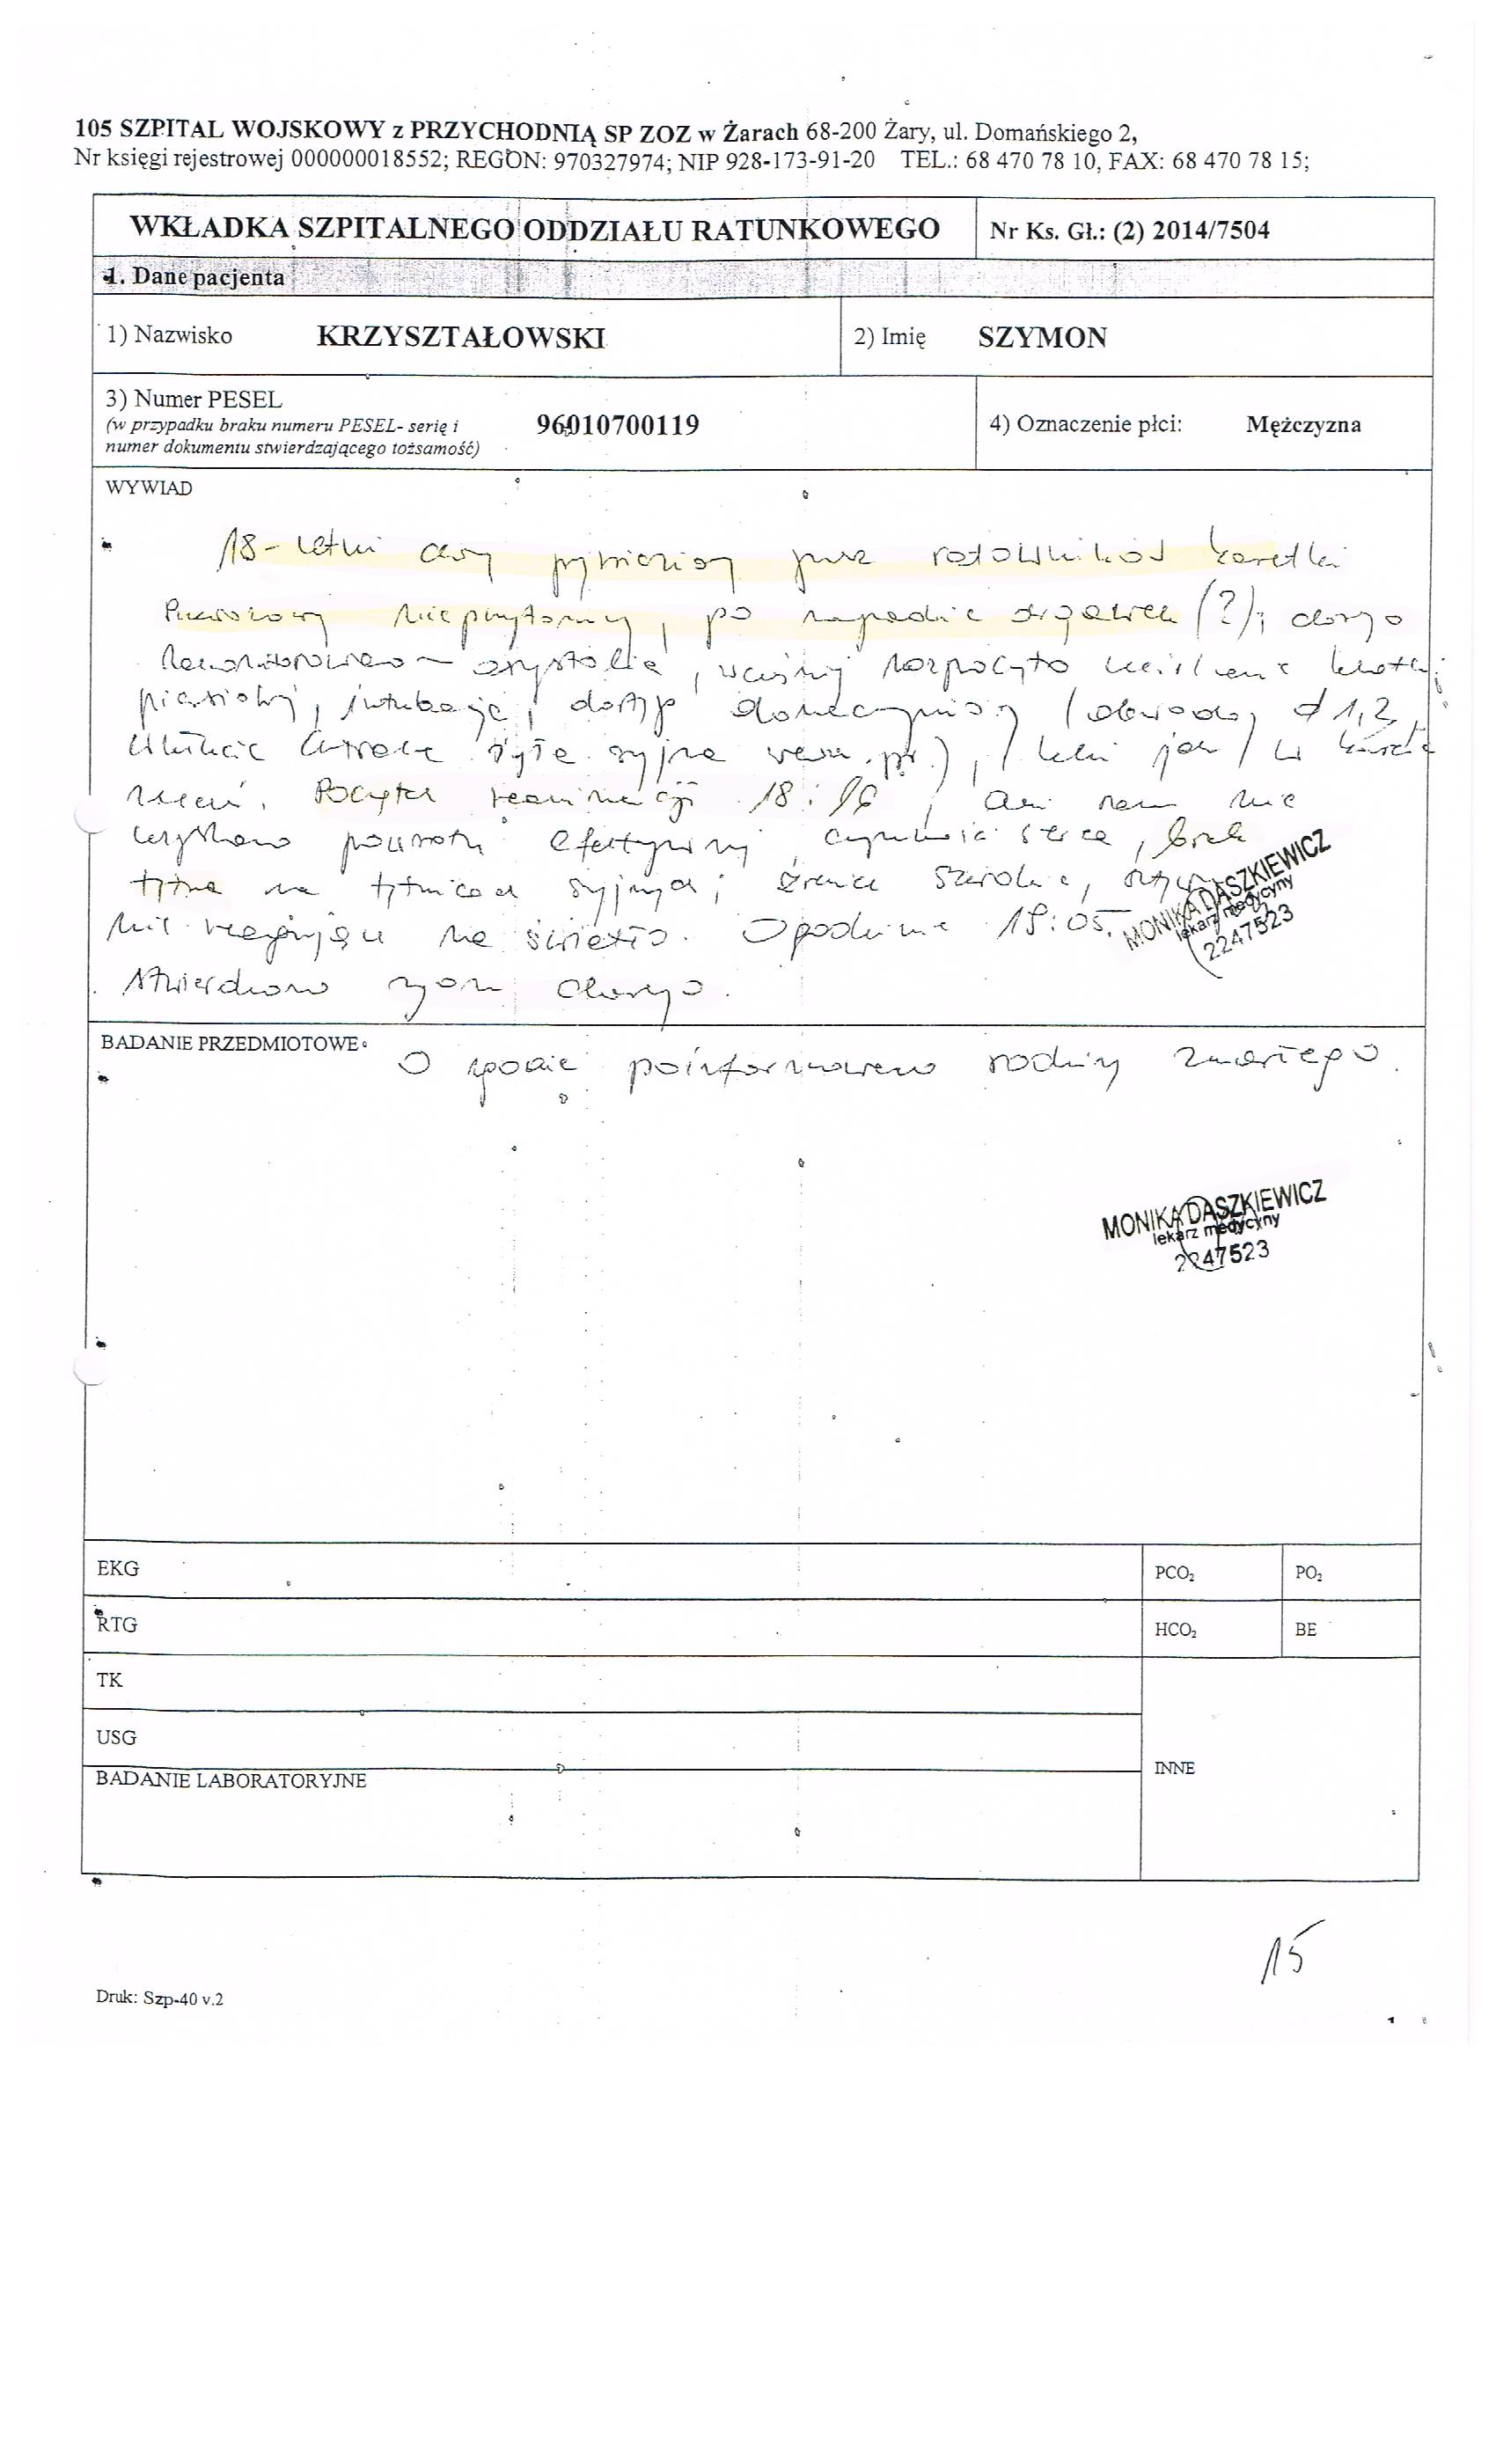 105 SZPITAL WOJSKOWY z PRZYCHODNIĄ SP ZOZ w Żarach 68-200 Żary, ul. Domańskiego 2,
Nr księgi rejestrowej 000000018552; REGON: 970327974; NIP 928-173-91-20 TEL.: 68 470 78 10, FAX: 68 470 78 15;
WKŁADKA SZPITALNEGO ODDZIAŁU RATUNKOWEGO Nr Ks. Gł.: (2) 2014/7504
1. Dane pacjenta
1) Nazwisko KRZYSZTAŁOWSKI 2) Imię SZYMON
3) Numer PESEL
(w przypadku braku numeru PESEL- serię i
numer dokumentu stwierdzającego tożsamość)
96010700119
4) Oznaczenie płci: Mężczyzna
WYWIAD
18-letni chory przywieziony przez ratowników karetki
nieprzytomny, po napadzie drgawek (?); chorego
asystolia, rozpoczęto
intubację, dostęp donaczyniowy
żyła szyjna, leki jak w karcie
Początek reanimacji, nie
powrotu efektywnej czynności serca, brak
tętna na tętnicach szyjnych; źrenice szerokie, sztywne
nie reagujące na światło. O godzinie
stwierdzono zgon chorego.
MONIKA DASZKIEWICZ
lekarz medycyny
2247523
BADANIE PRZEDMIOTOWE
O zgonie poinformowano rodzinę zmarłego.
MONIKA DASZKIEWICZ
lekarz medycyny
2247523
EKG PCO₂ PO₂
RTG HCO₂ BE
TK
USG
INNE
BADANIE LABORATORYJNE
15
Druk: Szp-40 v.2